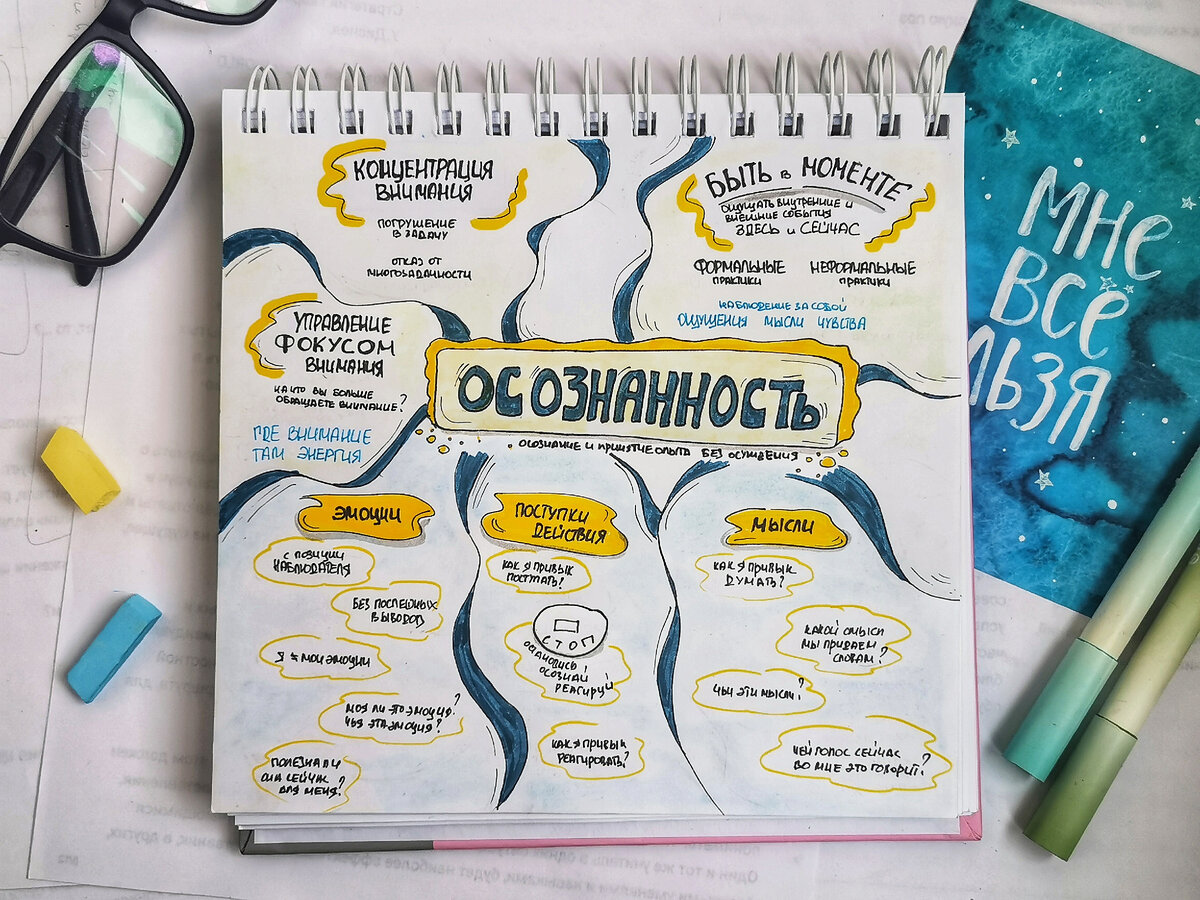 КОНЦЕНТРАЦИЯ
ВНИМАНИЯ
ПОГРУЖЕНИЕ
В ЗАДАЧУ
ОТКАЗ ОТ
МНОГОЗАДАЧНОСТИ
БЫТЬ в МОМЕНТЕ
ОЩУЩАТЬ ВНУТРЕННИЕ И
ВНЕШНИЕ СОБЫТИЯ
ЗДЕСЬ и СЕЙЧАС
ФОРМАЛЬНЫЕ
ПРАКТИКИ
НЕФОРМАЛЬНЫЕ
ПРАКТИКИ
НАБЛЮДЕНИЕ ЗА СОБОЙ
ОЩУЩЕНИЯ МЫСЛИ ЧУВСТВА
УПРАВЛЕНИЕ
ФОКУСОМ
ВНИМАНИЯ
НА ЧТО ВЫ БОЛЬШЕ
ОБРАЩАЕТЕ ВНИМАНИЕ?
ГДЕ ВНИМАНИЕ
ТАМ ЭНЕРГИЯ
ОСОЗНАННОСТЬ
ОСОЗНАНИЕ И ПРИНЯТИЕ ОПЫТА БЕЗ ОСУЖДЕНИЯ
ЭМОЦИИ
С ПОЗИЦИИ
НАБЛЮДАТЕЛЯ
БЕЗ ПОСПЕШНЫХ
ВЫВОДОВ
Я ≠ МОИ ЭМОЦИИ
МОЯ ЛИ ЭТО ЭМОЦИЯ?
ЧЬЯ ЭТА ЭМОЦИЯ?
ПОЛЕЗНА ЛИ
ОНА СЕЙЧАС
ДЛЯ МЕНЯ?
ПОСТУПКИ
ДЕЙСТВИЯ
КАК Я ПРИВЫК
ПОСТУПАТЬ?
СТОП
ОСТАНОВИСЬ,
ОСОЗНАЙ
РЕАГИРУЙ
КАК Я ПРИВЫК
РЕАГИРОВАТЬ?
МЫСЛИ
КАК Я ПРИВЫК
ДУМАТЬ?
КАКОЙ СМЫСЛ
МЫ ПРИДАЕМ
СЛОВАМ?
ЧЬИ ЭТИ МЫСЛИ?
ЧЕЙ ГОЛОС СЕЙЧАС
ВО МНЕ ЭТО ГОВОРИТ?
МНЕ
ВСЁ
ЛЬЗЯ